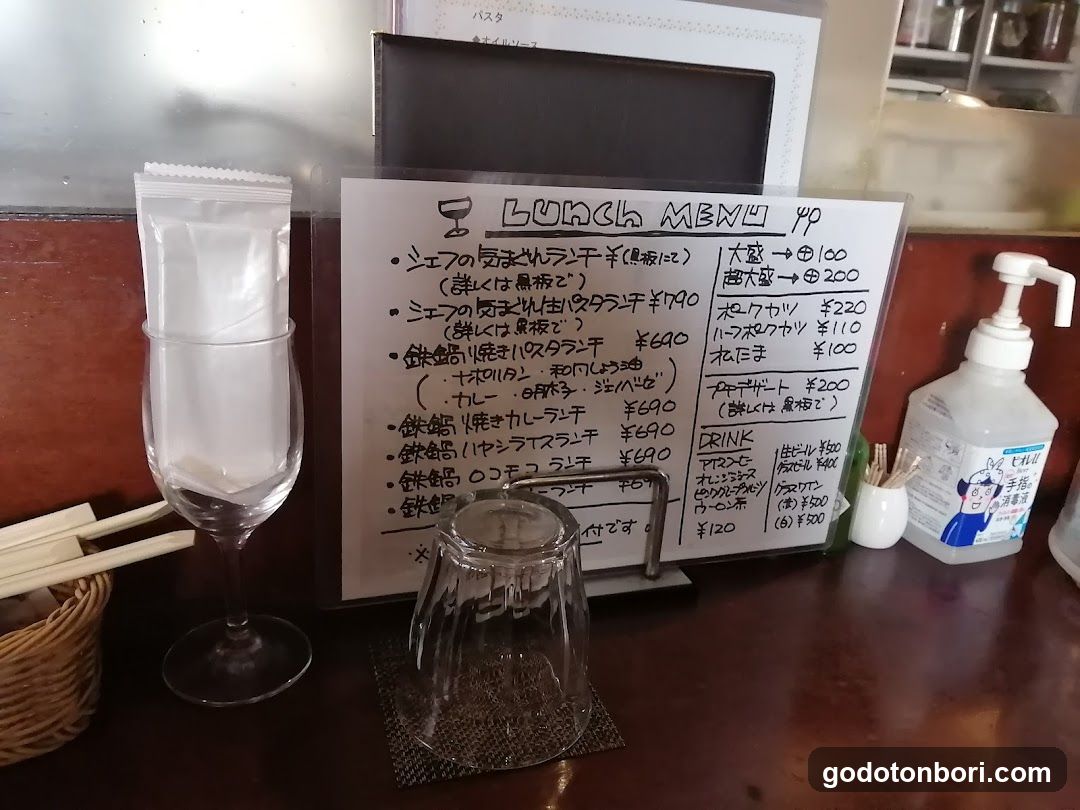 パスタ
◆オイルソース
LUNCH MENU
・シェフの気まぐれランチ ¥(黒板にて)
(詳しくは黒板で)
・シェフの気まぐれ生パスタランチ ¥790
(詳しくは黒板で)
・鉄鍋焼きパスタランチ ¥690
(・ナポリタン・和風しょう油
・カレー・明太子・ジェノベーゼ)
・鉄鍋焼きカレーランチ ¥690
・鉄鍋ハヤシライスランチ ¥690
・鉄鍋ロコモコランチ ¥690
・鉄鍋 ランチ ¥690
※ 付です。
大盛→⊕100
超大盛→⊕200
ポークカツ ¥220
ハーフポークカツ ¥110
温たま ¥100
プチデザート ¥200
(詳しくは黒板で)
DRINK
アイスコーヒー
オレンジジュース
ピンクグレープフルーツ
ウーロン茶
¥120
生ビール ¥500
グラスビール ¥400
グラスワイン
(赤) ¥500
(白) ¥500
ビオレu
手指の
消毒液
godotonbori.com